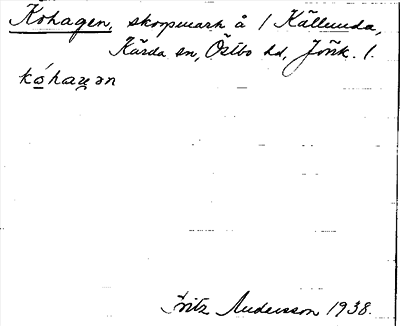 Kohagen, skogsmark å 1 Källunda,
Kärda sn, Östbo hd, Jönk. l.
kóhagən
Fritz Andersson 1938.